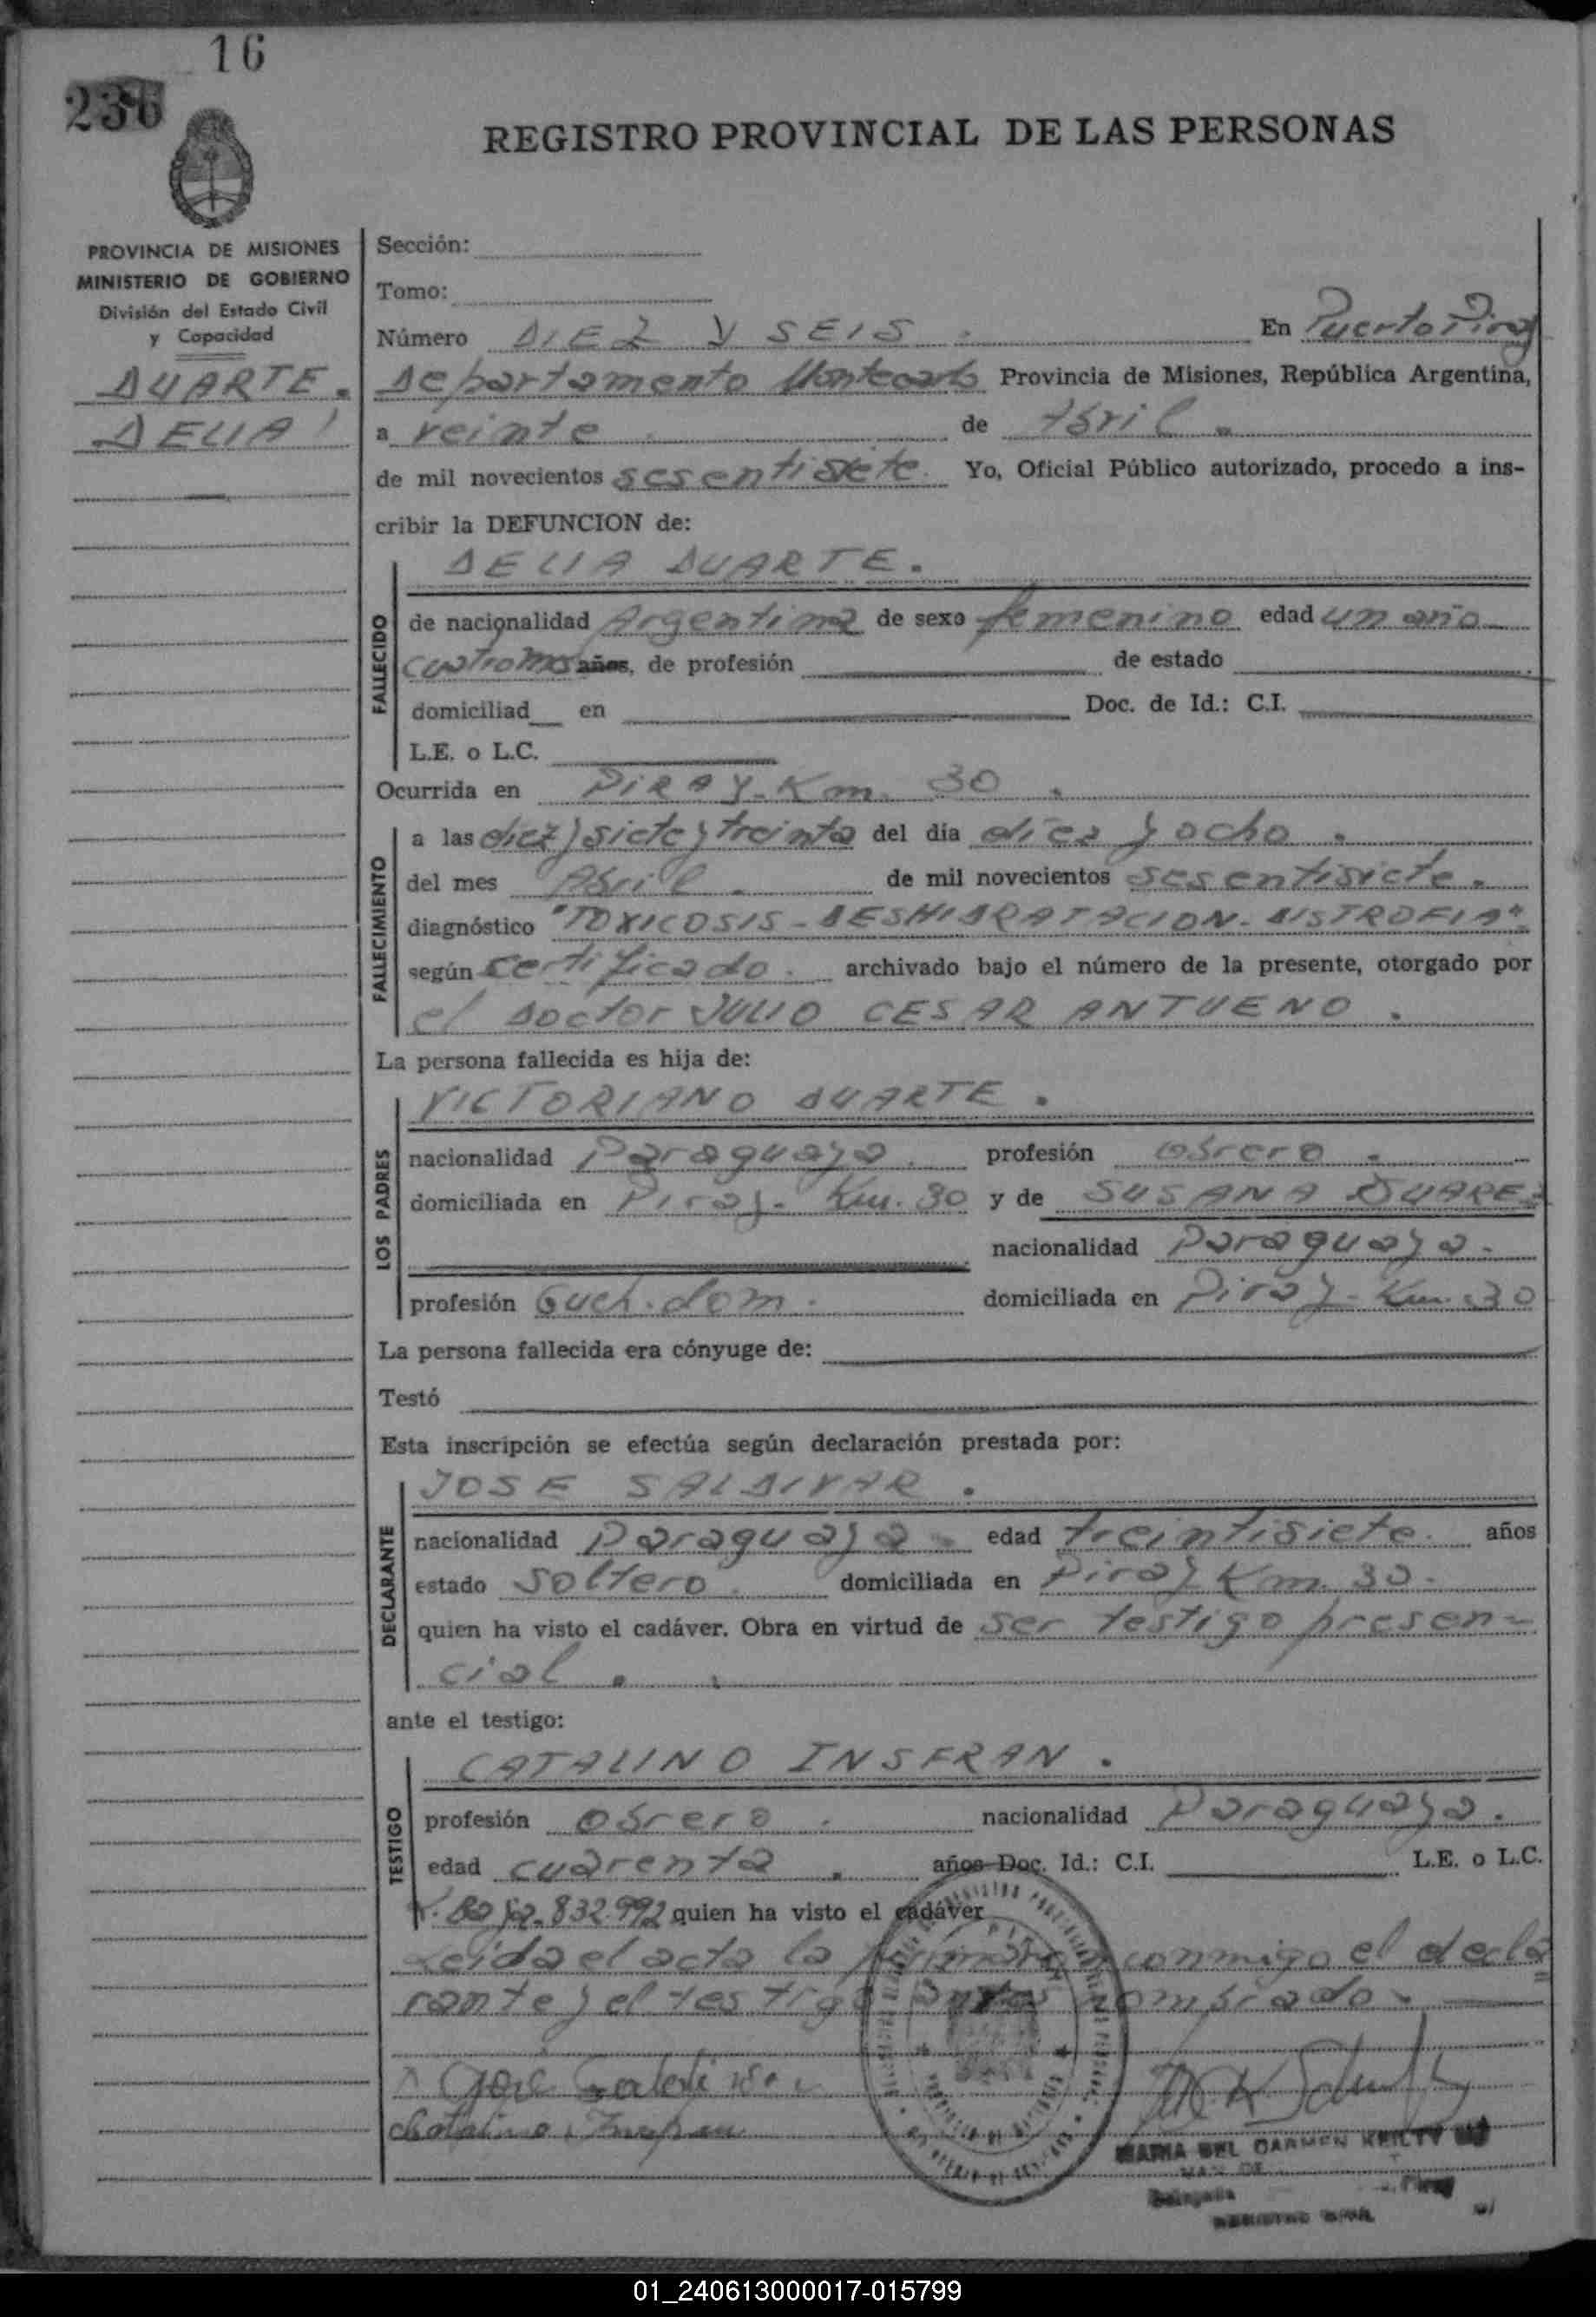 16
236
REGISTRO PROVINCIAL DE LAS PERSONAS
PROVINCIA DE MISIONES
MINISTERIO DE GOBIERNO
División del Estado Civil
y Capacidad
DUARTE.
DELIA
Sección:
Tomo:
Número DIEZ Y SEIS. En Puerto Piray
Departamento Montecarlo Provincia de Misiones, República Argentina,
a veinte. de Abril.
de mil novecientos sesentisiete. Yo, Oficial Público autorizado, procedo a ins-
cribir la DEFUNCION de:
FALLECIDO
DELIA DUARTE.
de nacionalidad Argentina de sexo femenino edad un año
cuatro mes años, de profesión de estado
domiciliad en Doc. de Id.: C.I.
L.E. o L.C.
Ocurrida en PIRAY-Km. 30.
FALLECIMIENTO
a las diez y siete y treinta del día diez y ocho.
del mes Abril. de mil novecientos sesentisiete.
diagnóstico "TOXICOSIS-DESHIDRATACION-DISTROFIA"
según certificado. archivado bajo el número de la presente, otorgado por
el Doctor JULIO CESAR ANTUENO.
La persona fallecida es hija de:
LOS PADRES
VICTORIANO DUARTE.
nacionalidad Paraguaya. profesión obrero.
domiciliada en Piray- Km. 30 y de SUSANA DUARE
nacionalidad Paraguaya.
profesión Quch. dom. domiciliada en Piray-Km.30
La persona fallecida era cónyuge de:
Testó
Esta inscripción se efectúa según declaración prestada por:
DECLARANTE
JOSE SALDIVAR.
nacionalidad Paraguaya. edad treintisiete. años
estado soltero. domiciliada en Piray Km. 30.
quien ha visto el cadáver. Obra en virtud de ser testigo presen-
cial.
ante el testigo:
TESTIGO
CATALINO INSFRAN.
profesión obrero. nacionalidad Paraguaya.
edad cuarenta. años Doc. Id.: C.I. L.E. o L.C.
832.992 quien ha visto el cadáver
Leida el acta la firmaron conmigo el decla
rante y el testigo antes nombrado.
José
MARIA DEL CARMEN
01_240613000017-015799